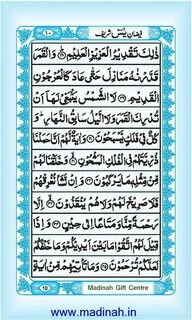 فیضانِ یٰسٓ شریف
ذٰلِكَ تَقْدِیْرُ الْعَزِیْزِ الْعَلِیْمِ وَالْقَمَرَ
قَدَّرْنٰهُ مَنَازِلَ حَتّٰى عَادَ كَالْعُرْجُوْنِ
الْقَدِیْمِ لَا الشَّمْسُ یَنْۢبَغِیْ لَهَاۤ اَنْ
تُدْرِكَ الْقَمَرَ وَلَا الَّیْلُ سَابِقُ النَّهَارِ وَ
كُلٌّ فِیْ فَلَكٍ یَّسْبَحُوْنَ وَاٰیَةٌ لَّهُمْ اَنَّا حَمَلْنَا
ذُرِّیَّتَهُمْ فِی الْفُلْكِ الْمَشْحُوْنِ وَخَلَقْنَا لَهُمْ
مِّنْ مِّثْلِهٖ مَا یَرْكَبُوْنَ وَاِنْ نَّشَاْ نُغْرِقْهُمْ
فَلَا صَرِیْخَ لَهُمْ وَلَا هُمْ یُنْقَذُوْنَ اِلَّا
رَحْمَةً مِّنَّا وَمَتَاعًا اِلٰى حِیْنٍ وَاِذَا
قِیْلَ لَهُمُ اتَّقُوْا مَا بَیْنَ اَیْدِیْكُمْ وَمَا خَلْفَكُمْ
لَعَلَّكُمْ تُرْحَمُوْنَ وَمَا تَاْتِیْهِمْ مِّنْ اٰیَةٍ
10 Madinah Gift Centre
www.madinah.in